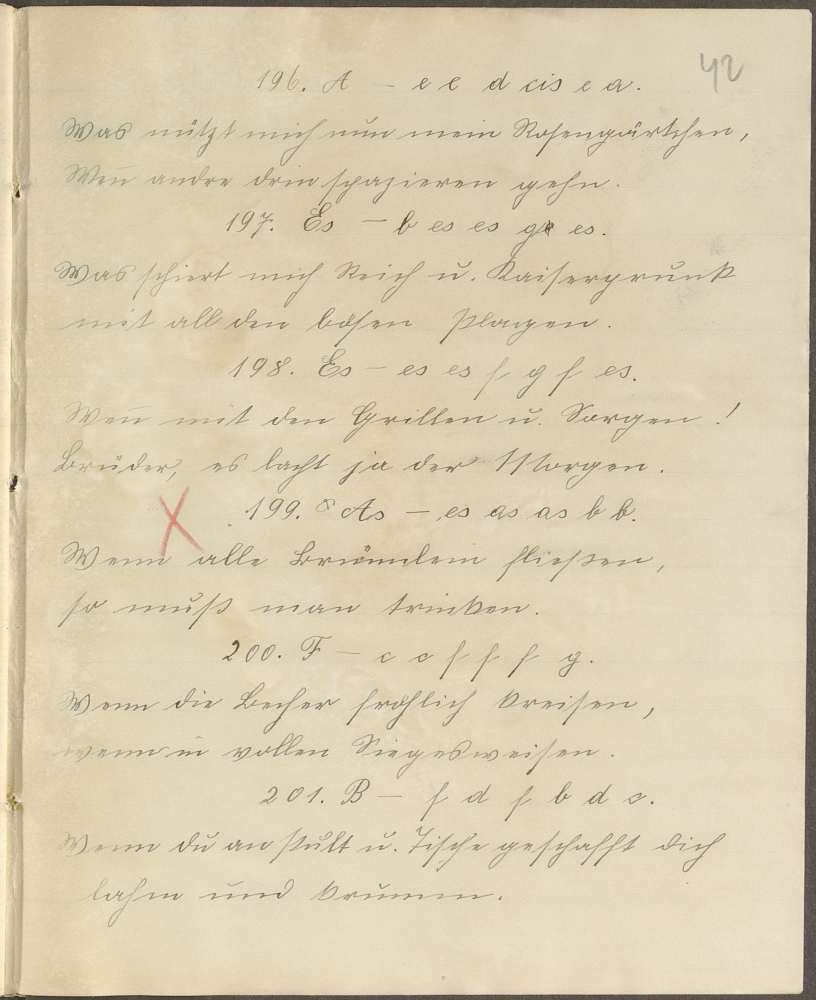 42
196. A – e e d cis e a.
Was nützt mich nun mein Rosengärtchen,
Weñ andre drin spazieren gehn.
197. Es – b es es g es.
Was schiert mich Reich u. Kaiserprunk
mit all den bösen Plagen.
198. Es – es es f g f es.
Weñ mit den Grillen u. Sorgen!
Brüder, es lacht ja der Morgen.
199. As – es as as b b.
Wenn alle Brünnlein fließen,
so muß man trinken.
200. F – c c f f f g.
Wenn die Becher fröhlich kreisen,
wenn in vollen Siegesweisen.
201. B – f d f b d c.
Wenn du an Pult u. Tische geschafft dich
lahm und krumm.